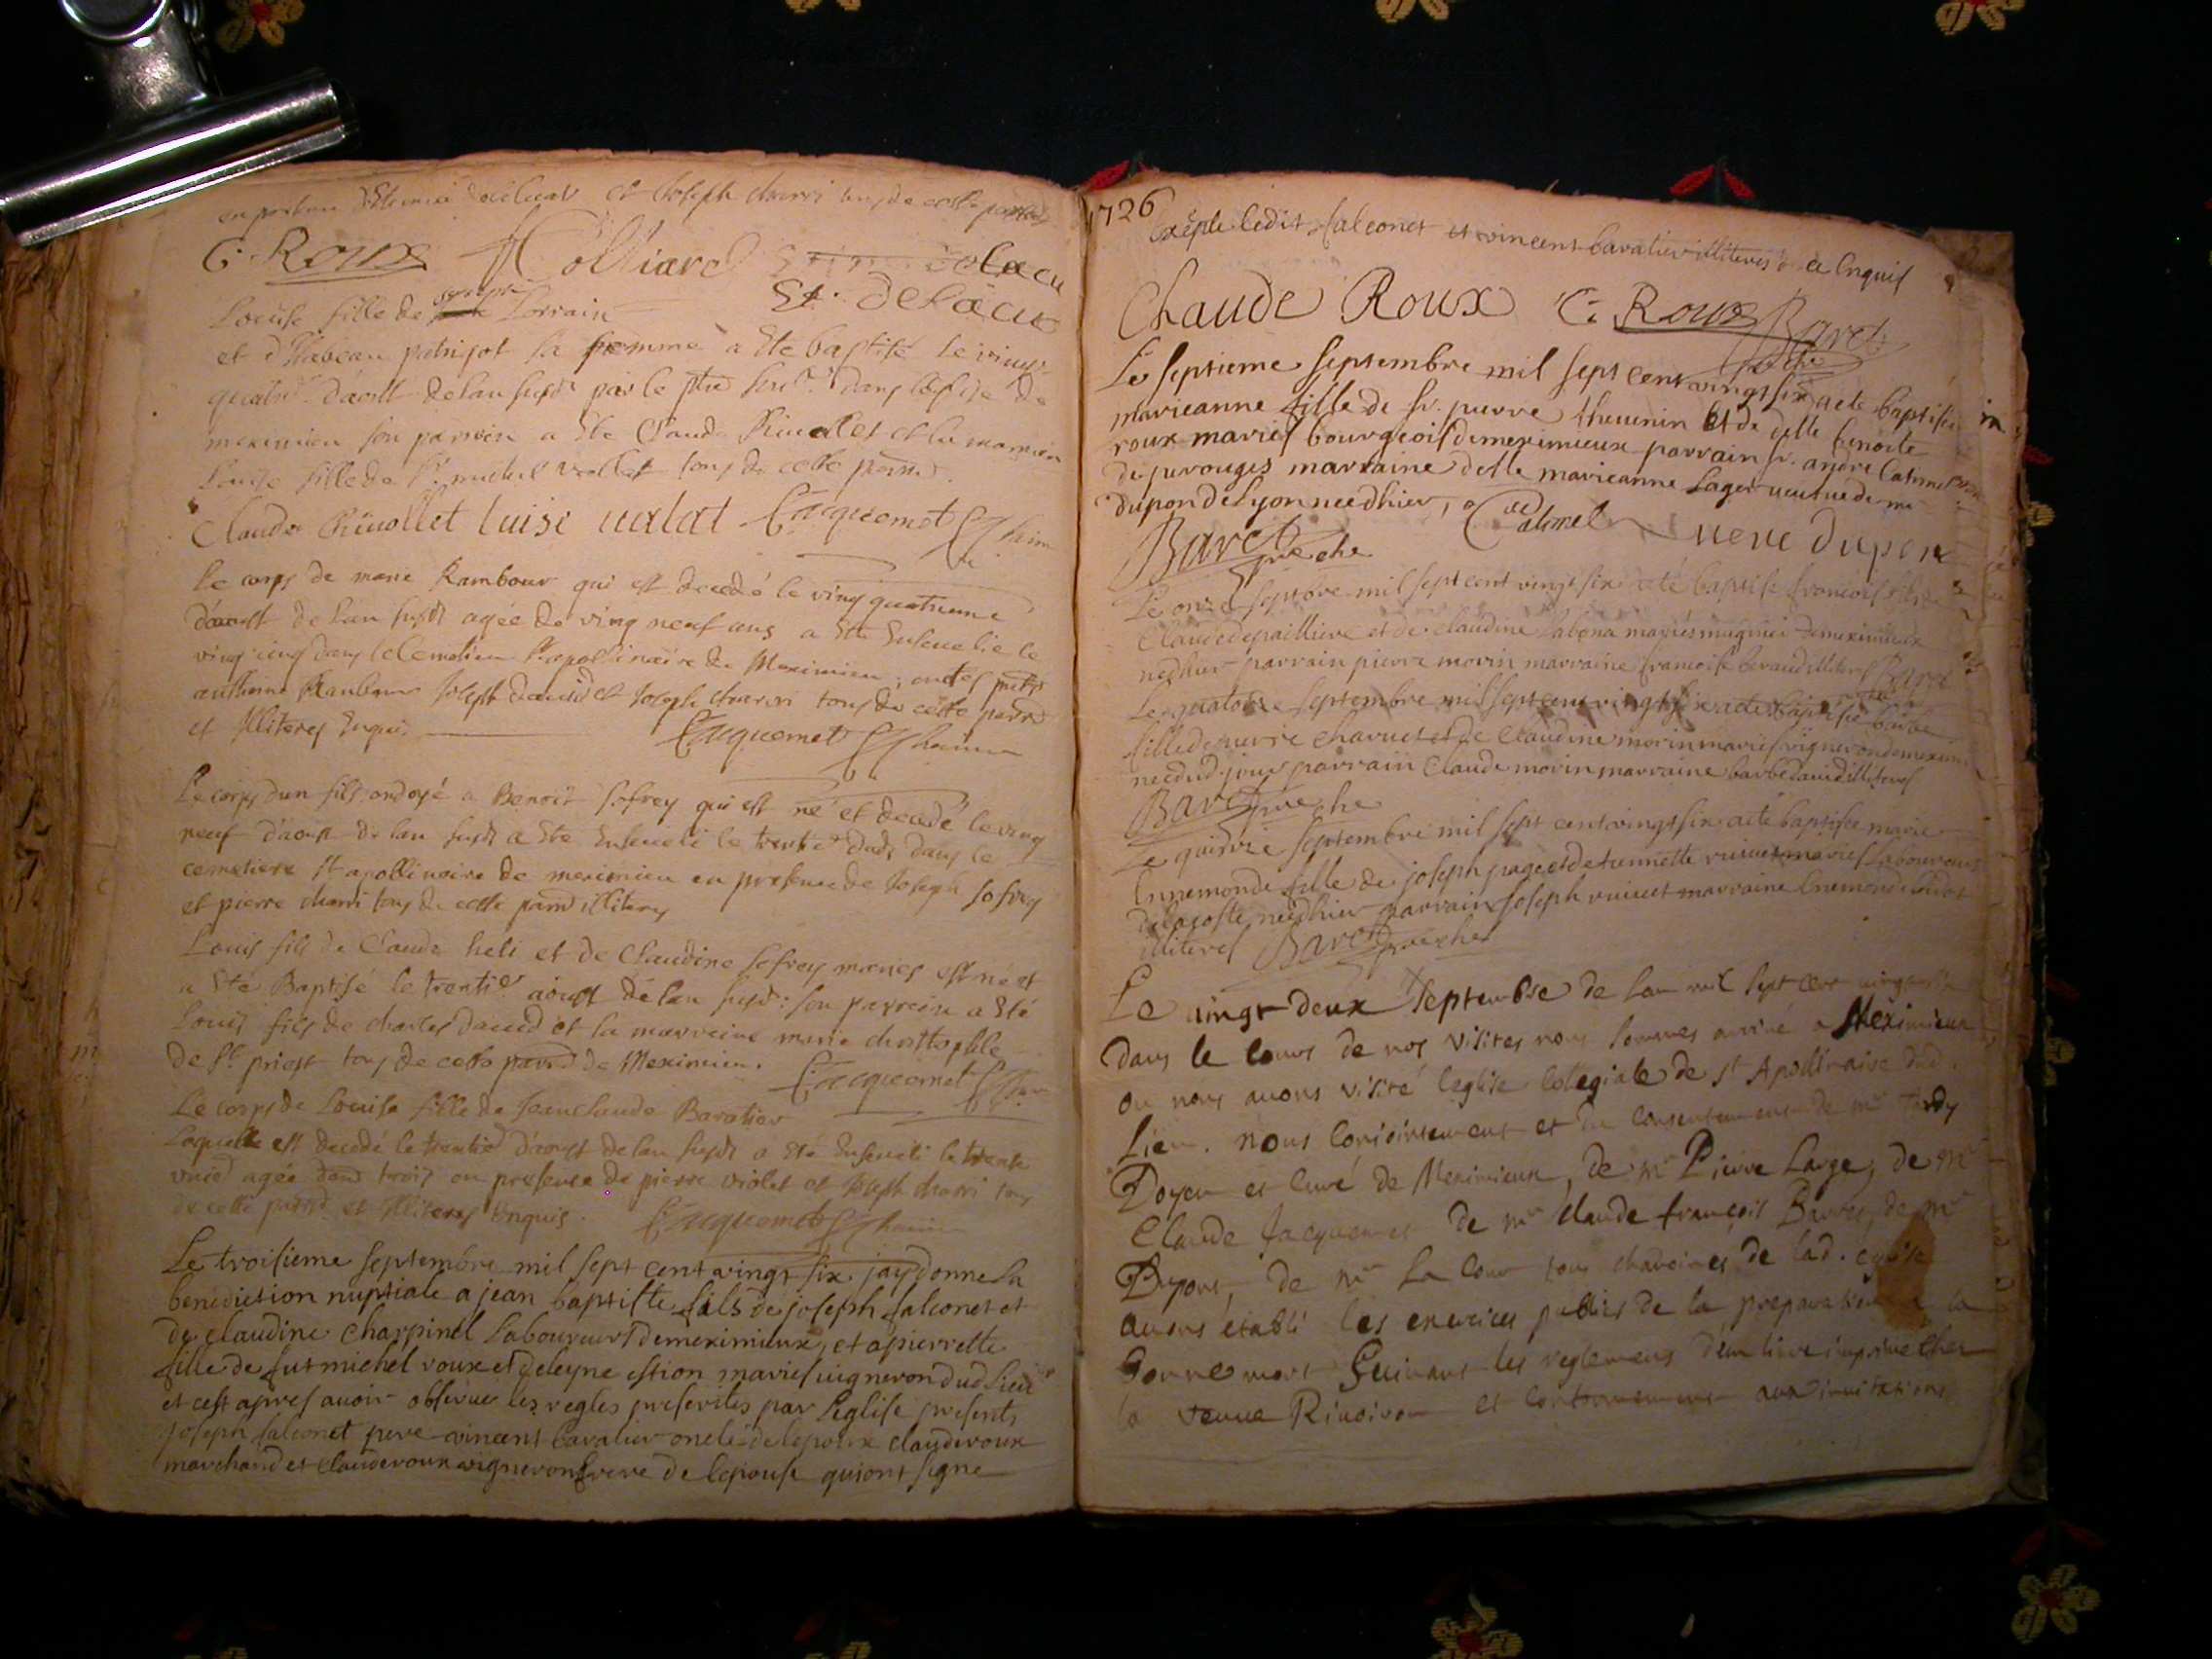 en presence d'Etienne delacut et Joseph charvi tous de cette parroisse
C. Roux Colliard
St. Delacut
Louise fille de Joseph Lorrain
et d'Isabeau patrigot sa femme a ete baptisé le vingt
quatre d'aoust de lan susd par le ptre sousne dans leglise de
meximieu son parrein a ete Claude Rivollet et la marraine
Louise fille de Sr. michel Vallat tous de cette parr
Claude Rivollet luise valat C. Jacquemet
Le corps de marie Rambour qui est decedé le vingt quatrieme
d'aoust de lan susd agée de vingt neuf ans a ete Ensevelie le
vingt cinq dans le Cemetiere St apollinaire de Meximieu, ont estes presents
anthoine Rambour Joseph david et Joseph charvi tous de cette parr
et Illiteres Enquis
C. Jacquemet
Le corps d'un fils ondoyé a Benoit Sofrey qui est né et decedé le vingt
neuf d'aoust de lan susd a ete Enseveli le trente dud dans le
cemetiere St apollinaire de meximieu en presence de Joseph Sofrey
et pierre charvi tous de cette parr illiteres
Louis fils de Claude heli et de Claudine Sofrey mariés est né et
a eté Baptisé le trentie aoust de lan susd : son parrein a eté
Louis fils de charles david et la marreine marie
de St. priest tous de cette parr de Meximieu. C. Jacquemet
Le corps de Louise fille de Jean claude Baratier
Laquelle est decedé le trentie d'aoust de lan susd a eté Enseveli le trente
unie agée trois en presence de pierre violet et Joseph charvi tous
de cette parr et Illiteres Enquis. C. Jacquemet
Le troisieme septembre mil sept cent vingt six jay donne la
benediction nuptiale a jean baptiste fils de joseph falconet et
de claudine Charpinel Laboureurs de meximieux, et a pierrette
fille de fut michel roux et de leyne estion maries vigneron dud Lieu
et cest apres avoir observer les regles prescrites par Leglise presents
Joseph falconet pere vincent Cavalier oncle de lepoux claude roux
marchand et claude roux vigneron frere de lepouse qui ont signe
1726
Excepte ledit falconet et vincent Cavalier illiteres de ce Enquis
Claude Roux C. Roux Baret
Le septieme septembre mil sept cent vingt six a ete baptisée
marieanne fille de sr. pierre thevenin et de delle benoite
roux maries bourgeois de meximieux parrain sr. andre Catimel
de perouges marraine delle marieanne Lager veufve de mr
dupon de Lyon nee dhier,
Baret Catimel veve dupon
Le onze septbre mil sept cent vingt six a eté baptise francois fils de
Claude depailliere et de claudine Sabona mariés de meximieux
ne dhier parrain pierre morin marraine francoise beraud illiteres Baret
Le quatorze septembre mil sept cent vingt six a ete baptisée barbe
fille de pierre charvet et de Claudine morin maries vigneron de meximieux
nee dud. jour parrain Claude morin marraine barbe david illiteres
Baret
Le quinzie septembre mil sept cent vingt six a ete baptisée marie
Ennemonde fille de joseph page et de tiennette vuiret maries Laboureurs
de la coste, nee dhier parrain Joseph vuiret marraine Ennemonde
illiteres Baret
Le vingt deux septembre de lan mil sept cent vingt six
dans le cours de nos visites nous sommes arrivé a Meximieux
ou nous avons visité leglise Colegiale de st Apollinaire dud.
Lieu. nous Conjointement et du consentement de mr tardy
Doyen et curé de Meximieux, de mr Pierre Large, de mr
Claude Jacquemet de mr Claude françois Barret, de mr
Dupont, de mr La Cour tous chanoines de lad. eglise
avons établi les exercices publics de la preparation a la
bonne mort Suivant les reglemens d'un livre imprimé chez
la veuve Rivoire et conformement aux invitations